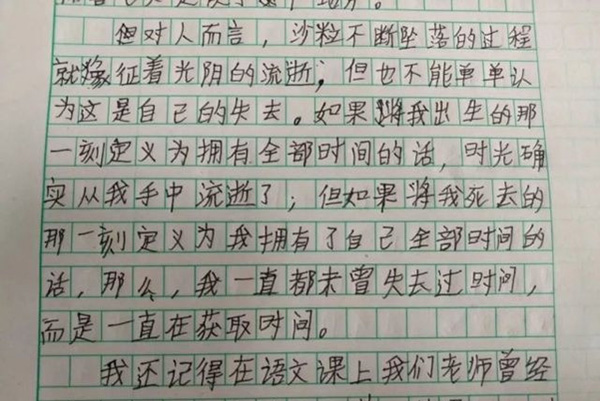 但对人而言，沙粒不断坠落的过程
就像征着光阴的流逝，但也不能单单认
为这是自己的失去。如果将我出生的那
一刻定义为拥有全部时间的话，时光确
实从我手中流逝了，但如果将我死去的
那一刻定义为我拥有了自己全部时间的
话，那么，我一直都未曾失去过时间，
而是一直在获取时间。
我还记得在语文课上我们老师曾经